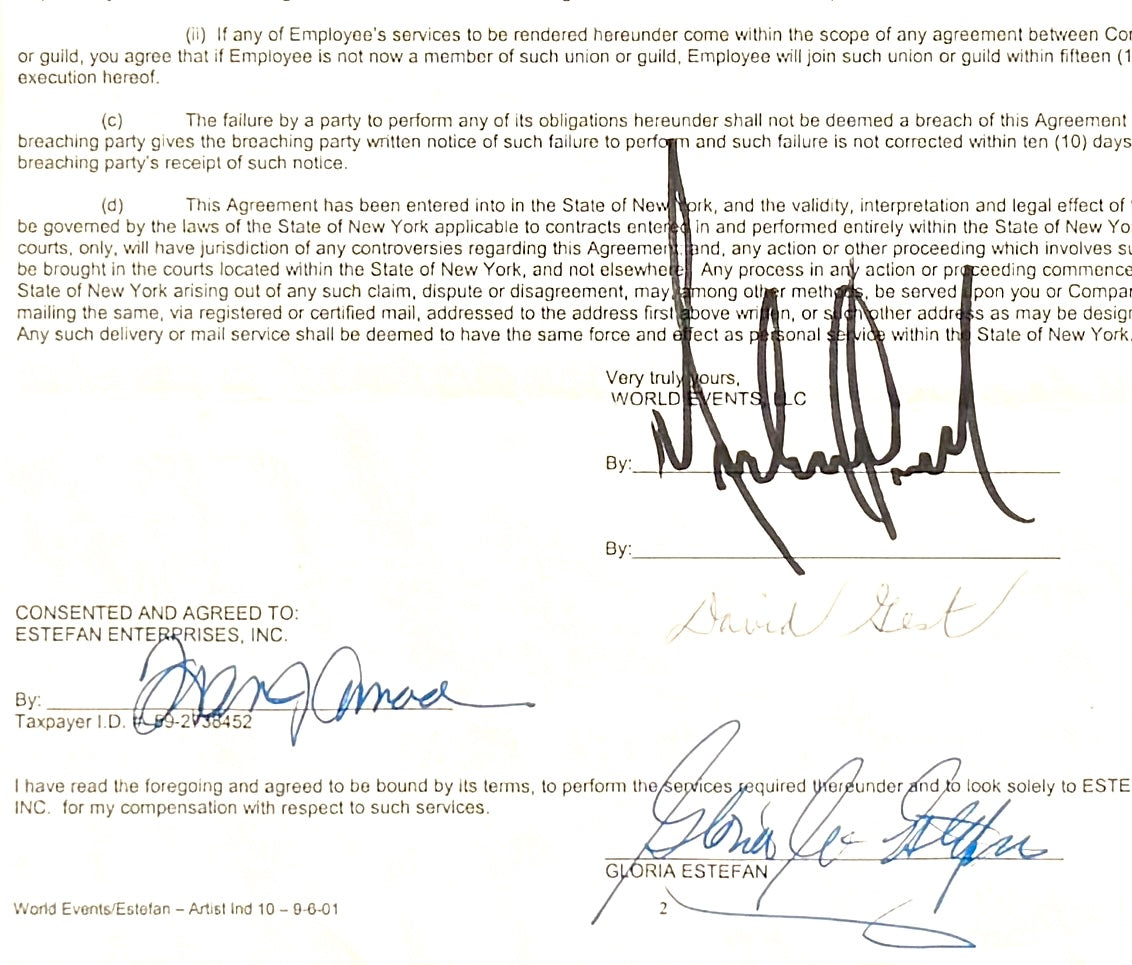 (ii) If any of Employee's services to be rendered hereunder come within the scope of any agreement between Co
or guild, you agree that if Employee is not now a member of such union or guild, Employee will join such union or guild within fifteen (1
execution hereof.
(c) The failure by a party to perform any of its obligations hereunder shall not be deemed a breach of this Agreement
breaching party gives the breaching party written notice of such failure to perform and such failure is not corrected within ten (10) days
breaching party's receipt of such notice.
(d) This Agreement has been entered into in the State of New York, and the validity, interpretation and legal effect of
be governed by the laws of the State of New York applicable to contracts entered in and performed entirely within the State of New Yo
courts, only, will have jurisdiction of any controversies regarding this Agreement and, any action or other proceeding which involves su
be brought in the courts located within the State of New York, and not elsewhere. Any process in any action or proceeding commence
State of New York arising out of any such claim, dispute or disagreement, may, among other methods, be served upon you or Compan
mailing the same, via registered or certified mail, addressed to the address first above written, or such other address as may be design
Any such delivery or mail service shall be deemed to have the same force and effect as personal service within the State of New York.
Very truly yours,
WORLD EVENTS, LLC
By:
By:
David Gest
CONSENTED AND AGREED TO:
ESTEFAN ENTERPRISES, INC.
By:
Taxpayer I.D. # 59-2738452
I have read the foregoing and agreed to be bound by its terms, to perform the services required thereunder and to look solely to ESTE
INC. for my compensation with respect to such services.
Gloria Estefan
GLORIA ESTEFAN
World Events/Estefan – Artist Ind 10 – 9-6-01 2